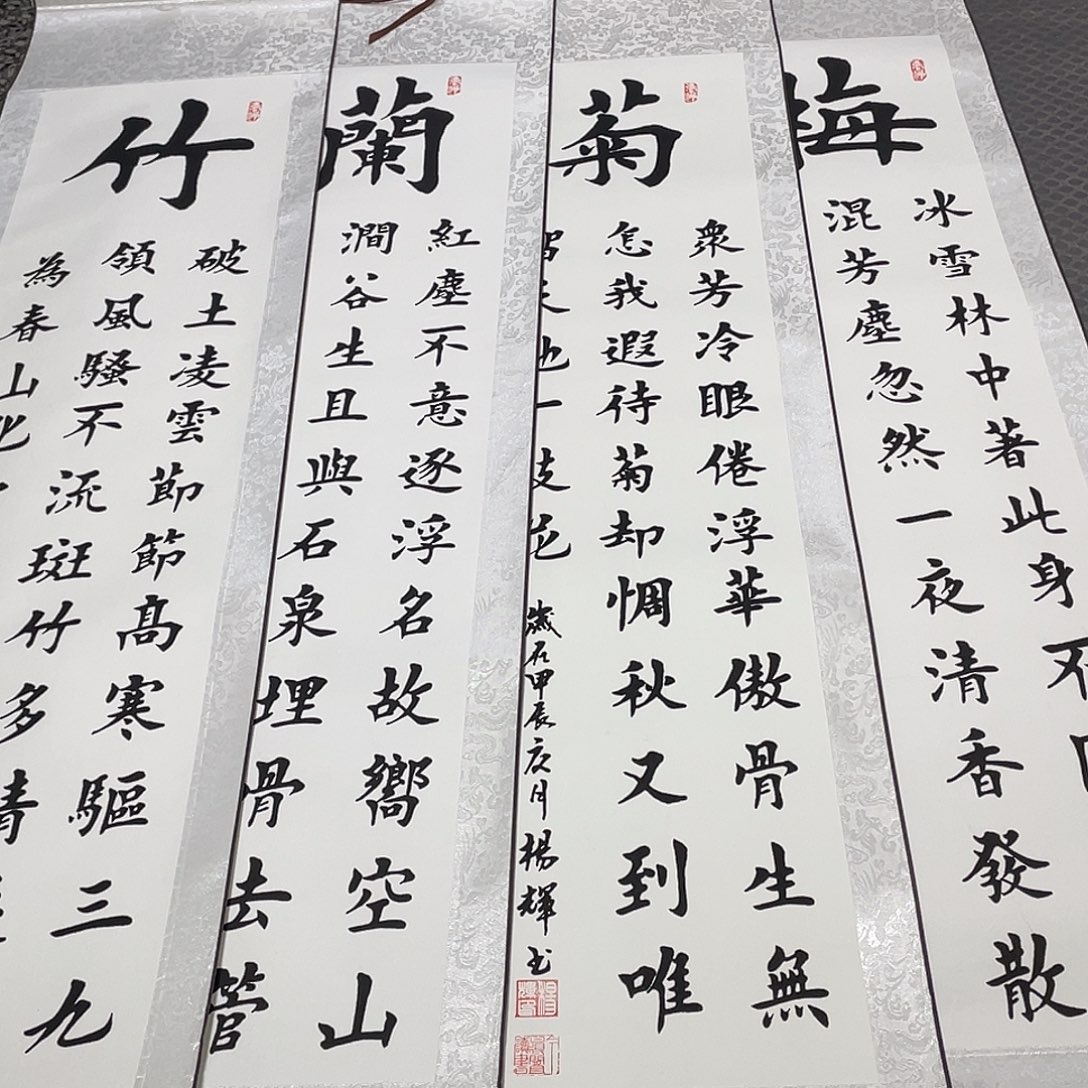 梅
冰雪林中著此身不
混芳塵忽然一夜清香發散
菊
衆芳冷眼倦浮華傲骨生無
怎我遐待菊却惆秋又到唯
一枝
歲在甲辰月楊輝书
蘭
紅塵不意逐浮名故嚮空山
澗谷生且與石泉埋骨去管
竹
破土凌雲節節高寒驅三九
領風騷不流斑竹多情
為春山